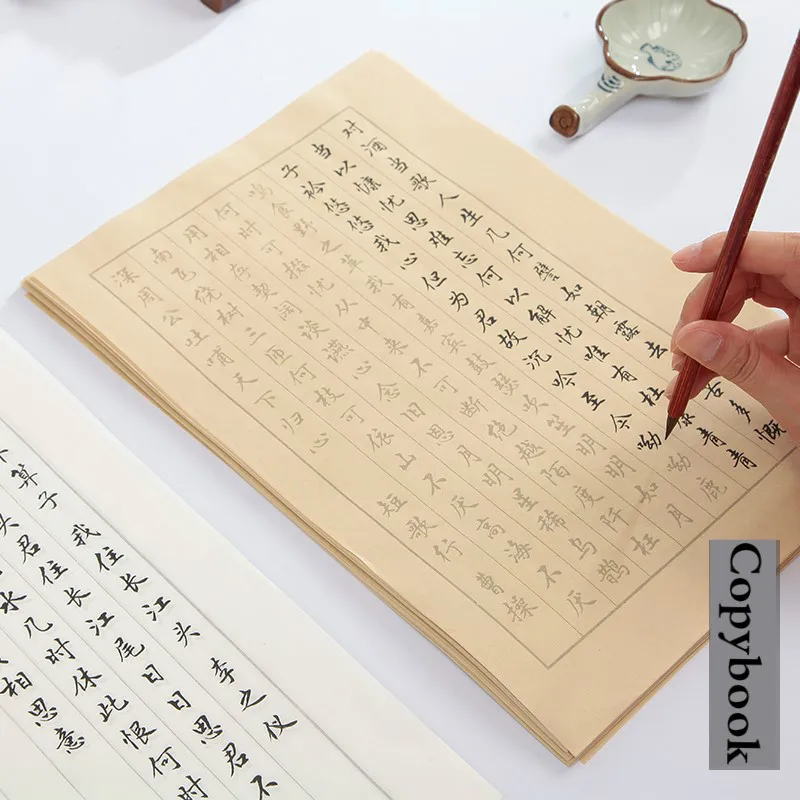 对酒当歌人生几何譬如朝露去苦多慨
当以慷忧思难忘何以解忧唯有杜康青青
子衿悠悠我心但为君故沉吟至今呦呦鹿
鸣食野之苹我有嘉宾鼓瑟吹笙明明如月
何时可掇忧从中来不可断绝越陌度阡枉
用相存契阔谈讌心念旧恩月明星稀乌鹊
南飞绕树三匝何枝可依山不厌高海不厌
深周公吐哺天下归心 短歌行 曹操
算子 我住长江头 李之仪
头君住长江尾日日思君不
水几时休此恨何时
相思意
Copybook